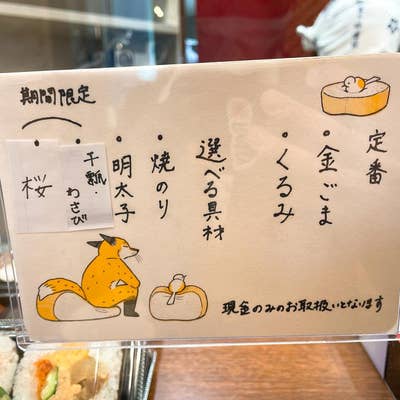 定番
・金ごま
・くるみ
選べる具材
・焼のり
・明太子
・干瓢・わさび
・桜
期間限定
現金のみのお取扱いとなります